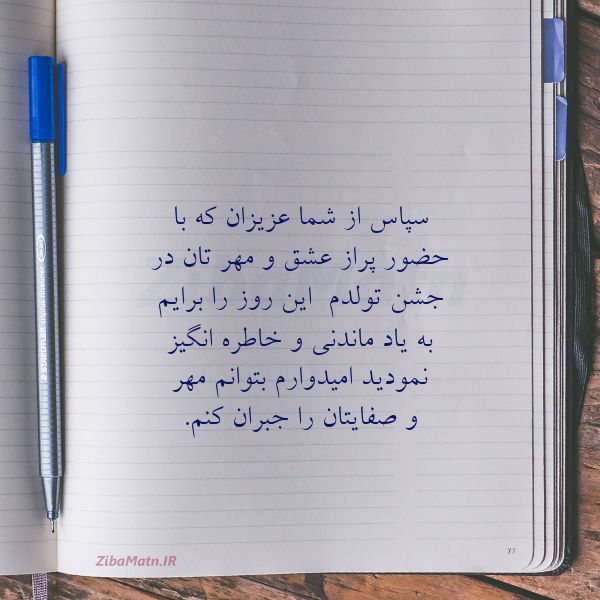 سپاس از شما عزیزان که با
حضور پراز عشق و مهر تان در
جشن تولدم  این روز را برایم
به یاد ماندنی و خاطره انگیز
نمودید امیدوارم بتوانم مهر
و صفایتان را جبران کنم.
77
ZibaMatn.IR